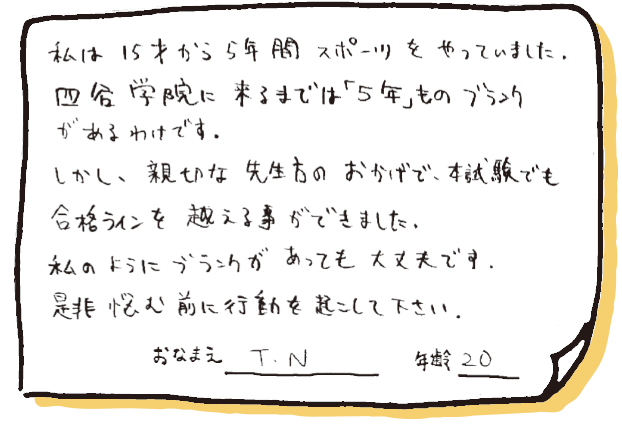 私は15才から5年間スポーツをやっていました.
四谷学院に来るまでは「5年」ものブランク
があるわけです.
しかし、親切な先生方のおかげで、本試験でも
合格ラインを越える事ができました.
私のようにブランクがあっても大丈夫です.
是非悩む前に行動を起こして下さい.
おなまえ T.N 年齢 20